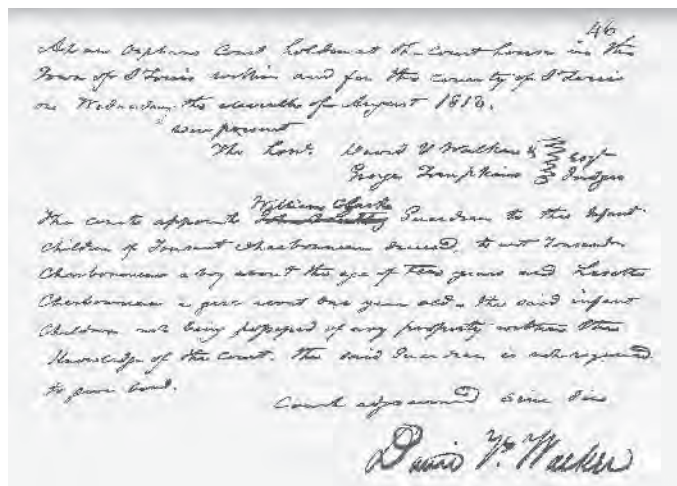 46
At an Orphans Court holden at the Court house in the
Town of St Louis within and for the county of St Louis
on Wednesday the eleventh of August 1813.
were present
The Honl. David V Walker & Esqr
George Tompkins Judges
William Clarke
The court appoints Guardian to the infant
Children of Tousant Charbonneau deceased, to wit Tousant
Charbonneau a boy about the age of Ten years and Lisette
Charbonneau a girl about one year old. the said infant
Children not being possessed of any property within the
Knowledge of the court. The said Guardian is not required
to give bond.
Court adjourned Sine Die
David V. Walker